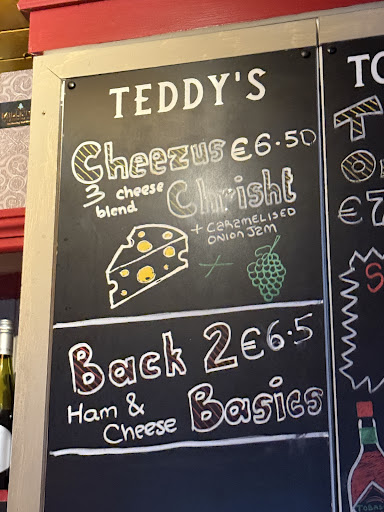 TEDDY'S
Cheezus €6.50
3 cheese blend Chrisht
+ CARAMELISED ONION JAM
+
Back 2 €6.5
Ham & Cheese Basics
TO
€7
S
TOBAS